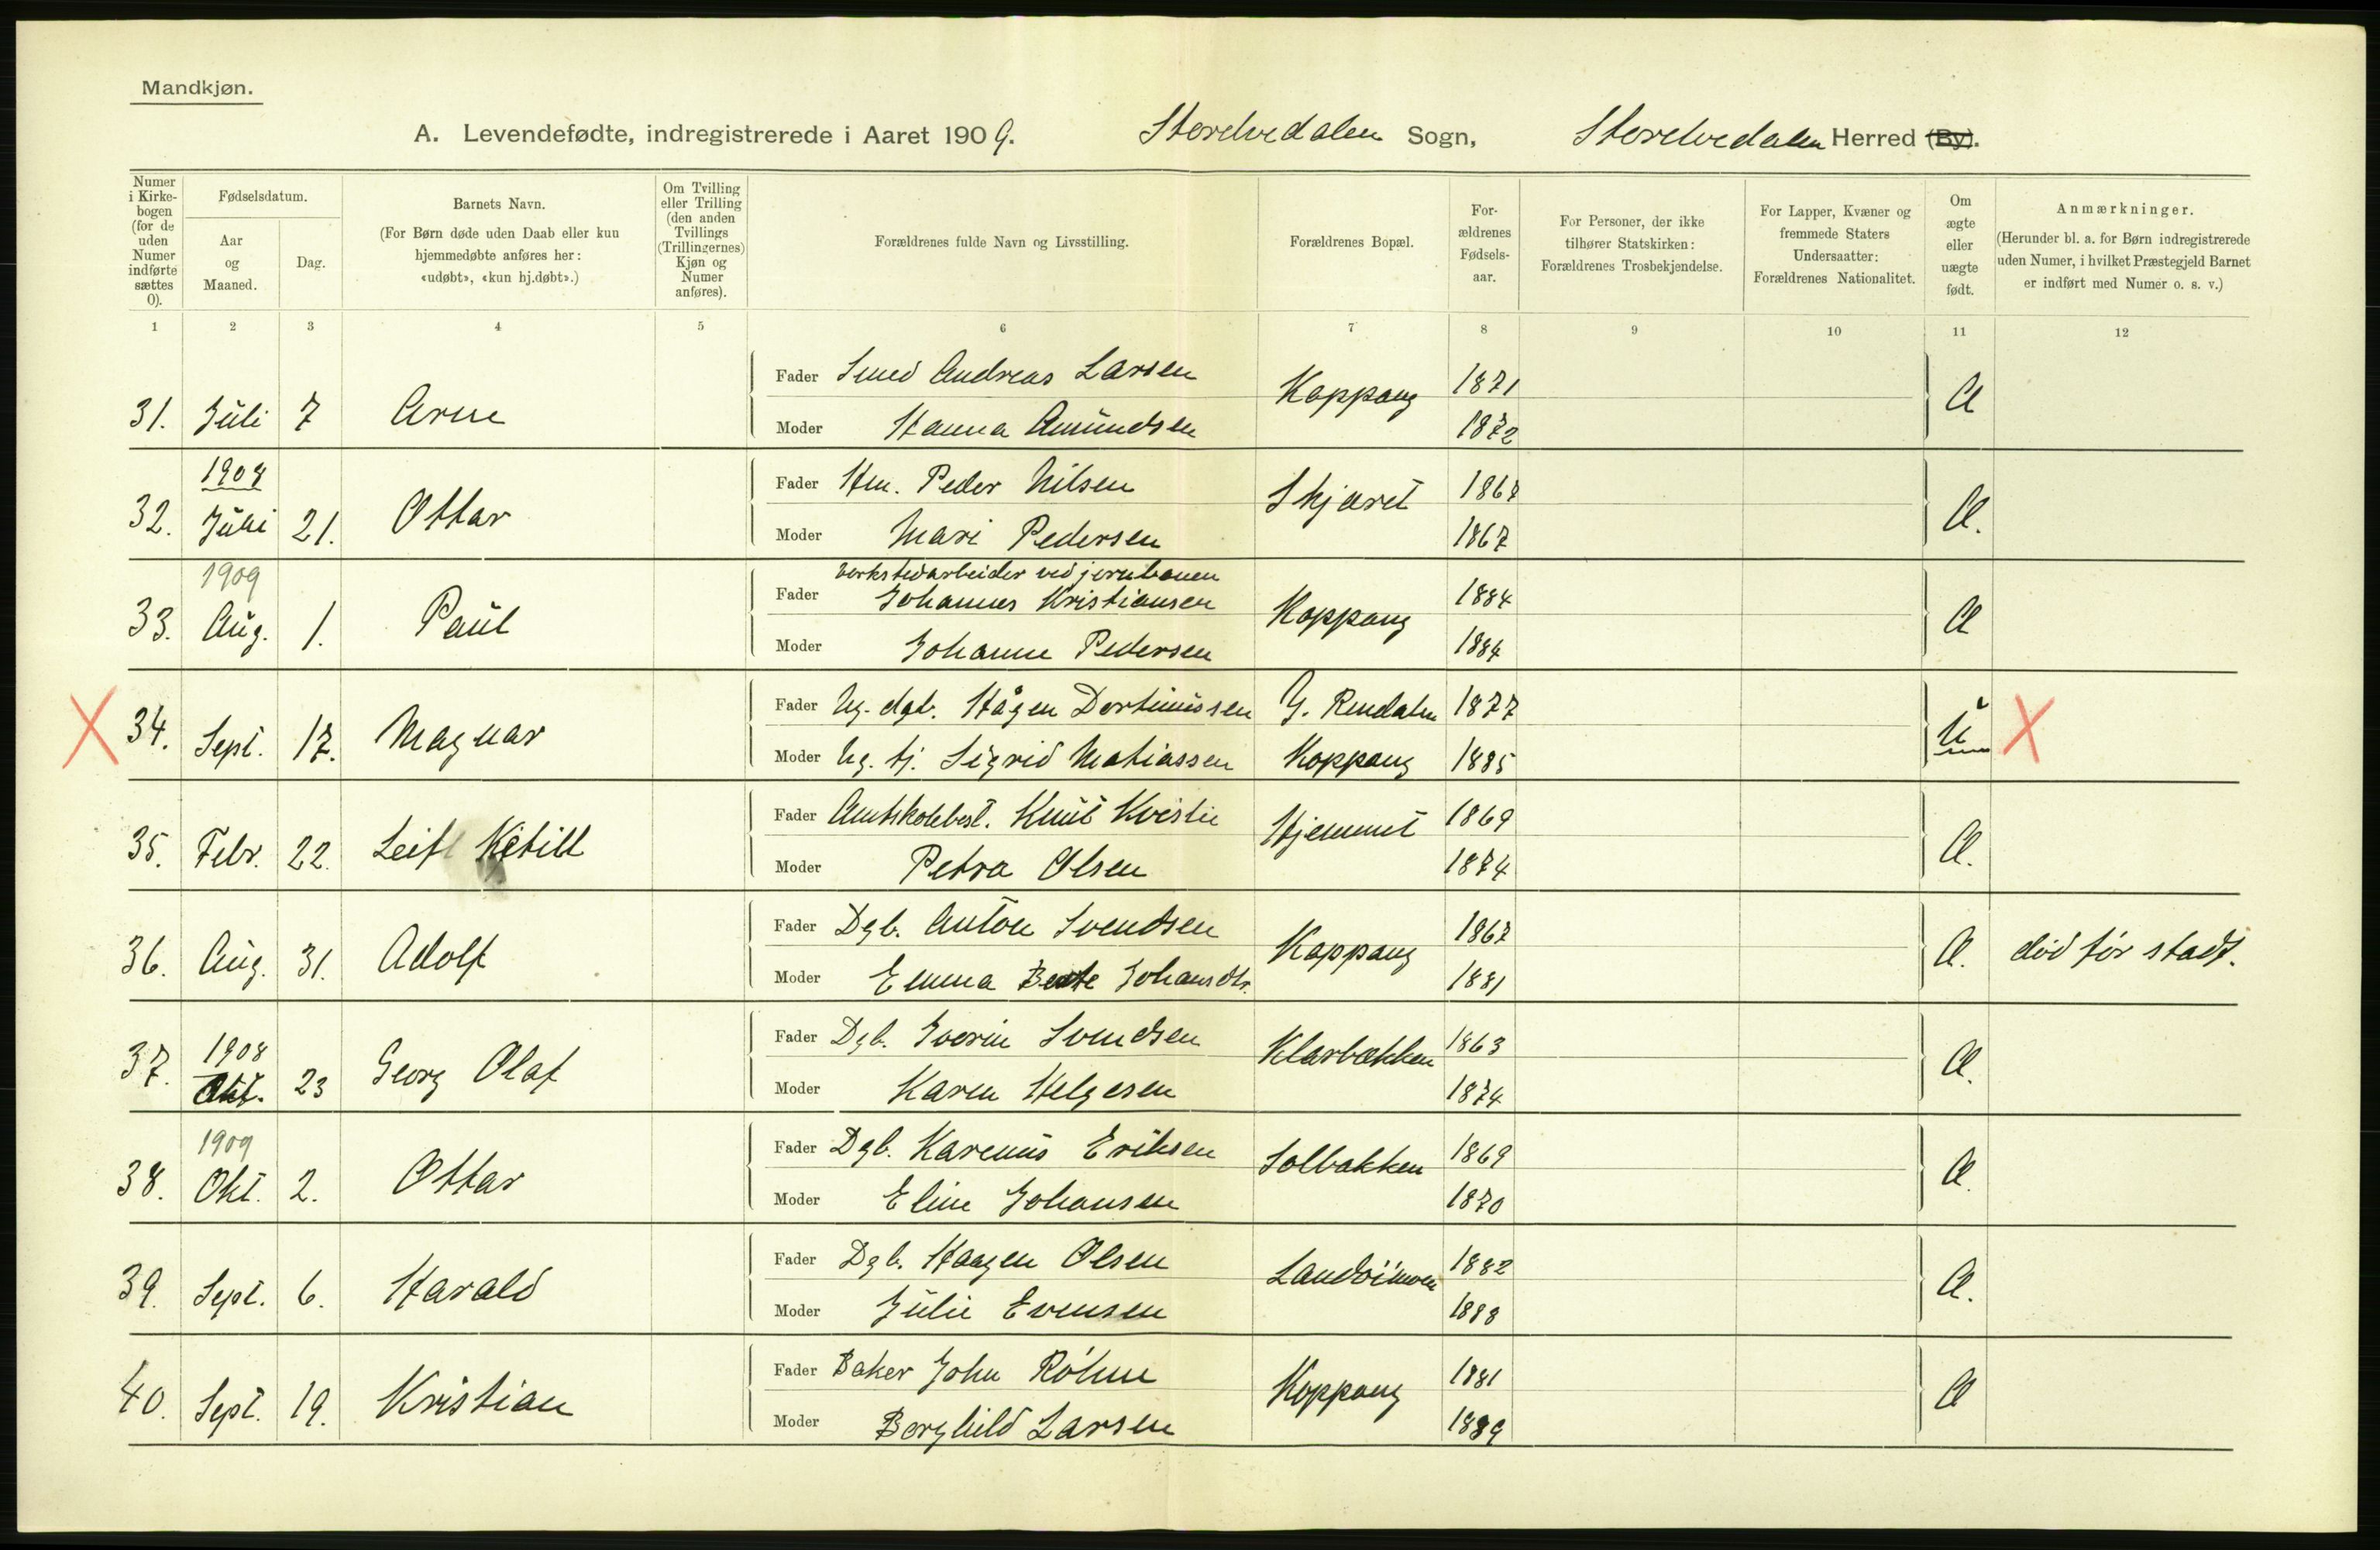 Mandkjøn.
A. Levendefødte, indregistrerede i Aaret 1909. Storelvedalen Sogn, Storelvedalen Herred (By).
Numer i Kirkebogen (for de uden Numer indførte sættes 0).
Fødselsdatum.
Aar og Maaned.
Dag.
Barnets Navn.
(For Børn døde uden Daab eller kun hjemmedøbte anføres her: «udøbt», «kun hj.døbt».)
Om Tvilling eller Trilling (den anden Tvillings (Trillingernes) Kjøn og Numer anføres).
Forældrenes fulde Navn og Livsstilling.
Forældrenes Bopæl.
For-ældrenes Fødsels-aar.
For Personer, der ikke tilhører Statskirken: Forældrenes Trosbekjendelse.
For Lapper, Kvæner og fremmede Staters Undersaatter: Forældrenes Nationalitet.
Om ægte eller uægte født.
Anmærkninger.
(Herunder bl. a. for Børn indregistrerede uden Numer, i hvilket Præstegjeld Barnet er indført med Numer o. s. v.)
1 2 3 4 5 6 7 8 9 10 11 12
Fader Smed Andreas Larsen Koppang 1871
31. Juli 7 Arne Æ
Moder Hanna Amundsen 1872
1908
Fader Hm. Peder Nilsen Skjæret 1867
32. Juli 21. Ottar Æ.
Moder Mari Pedersen 1867
1909
Verkstedarbeider ved jernbanen
Fader Johannes Kristiansen Koppang 1884
33. Aug. 1. Paul Æ
Moder Johanne Pedersen 1884
Fader Ug. dgb. Hågen Dortinussen Y. Rendalen 1877
X 34. Sept. 17. Magnar U X
Moder Ug. tj. Sigrid Matiassen Koppang 1885
Fader Amtskolebest. Knut Kvistli Hjemmet 1869
35. Febr. 22. Leif Ketill Æ.
Moder Petra Olsen 1874
Fader Dgb. Anton Svendsen Koppang 1867
36. Aug. 31. Adolf Æ. død før stadf.
Moder Emma Beate Johansdtr. 1881
1908
Fader Dgb. Iverin Svendsen Klarbækken 1863
37. Okt. 23 Georg Olaf Æ.
Moder Karen Helgesen 1874
1909
Fader Dgb. Karenus Eriksen Solbakken 1869
38. Okt. 2. Ottar Æ.
Moder Eline Johansen 1870
Fader Dgb. Haagen Olsen 1882
39. Sept. 6. Harald Æ.
Moder Julie Evensen 1888
Fader Baker John Røhne Koppang 1881
40. Sept. 19. Kristian Æ
Moder Borghild Larsen 1889